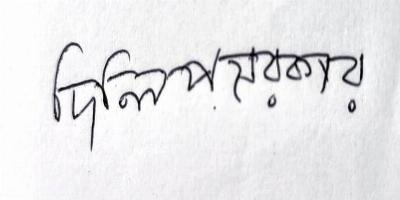 দিলিপ সরকার